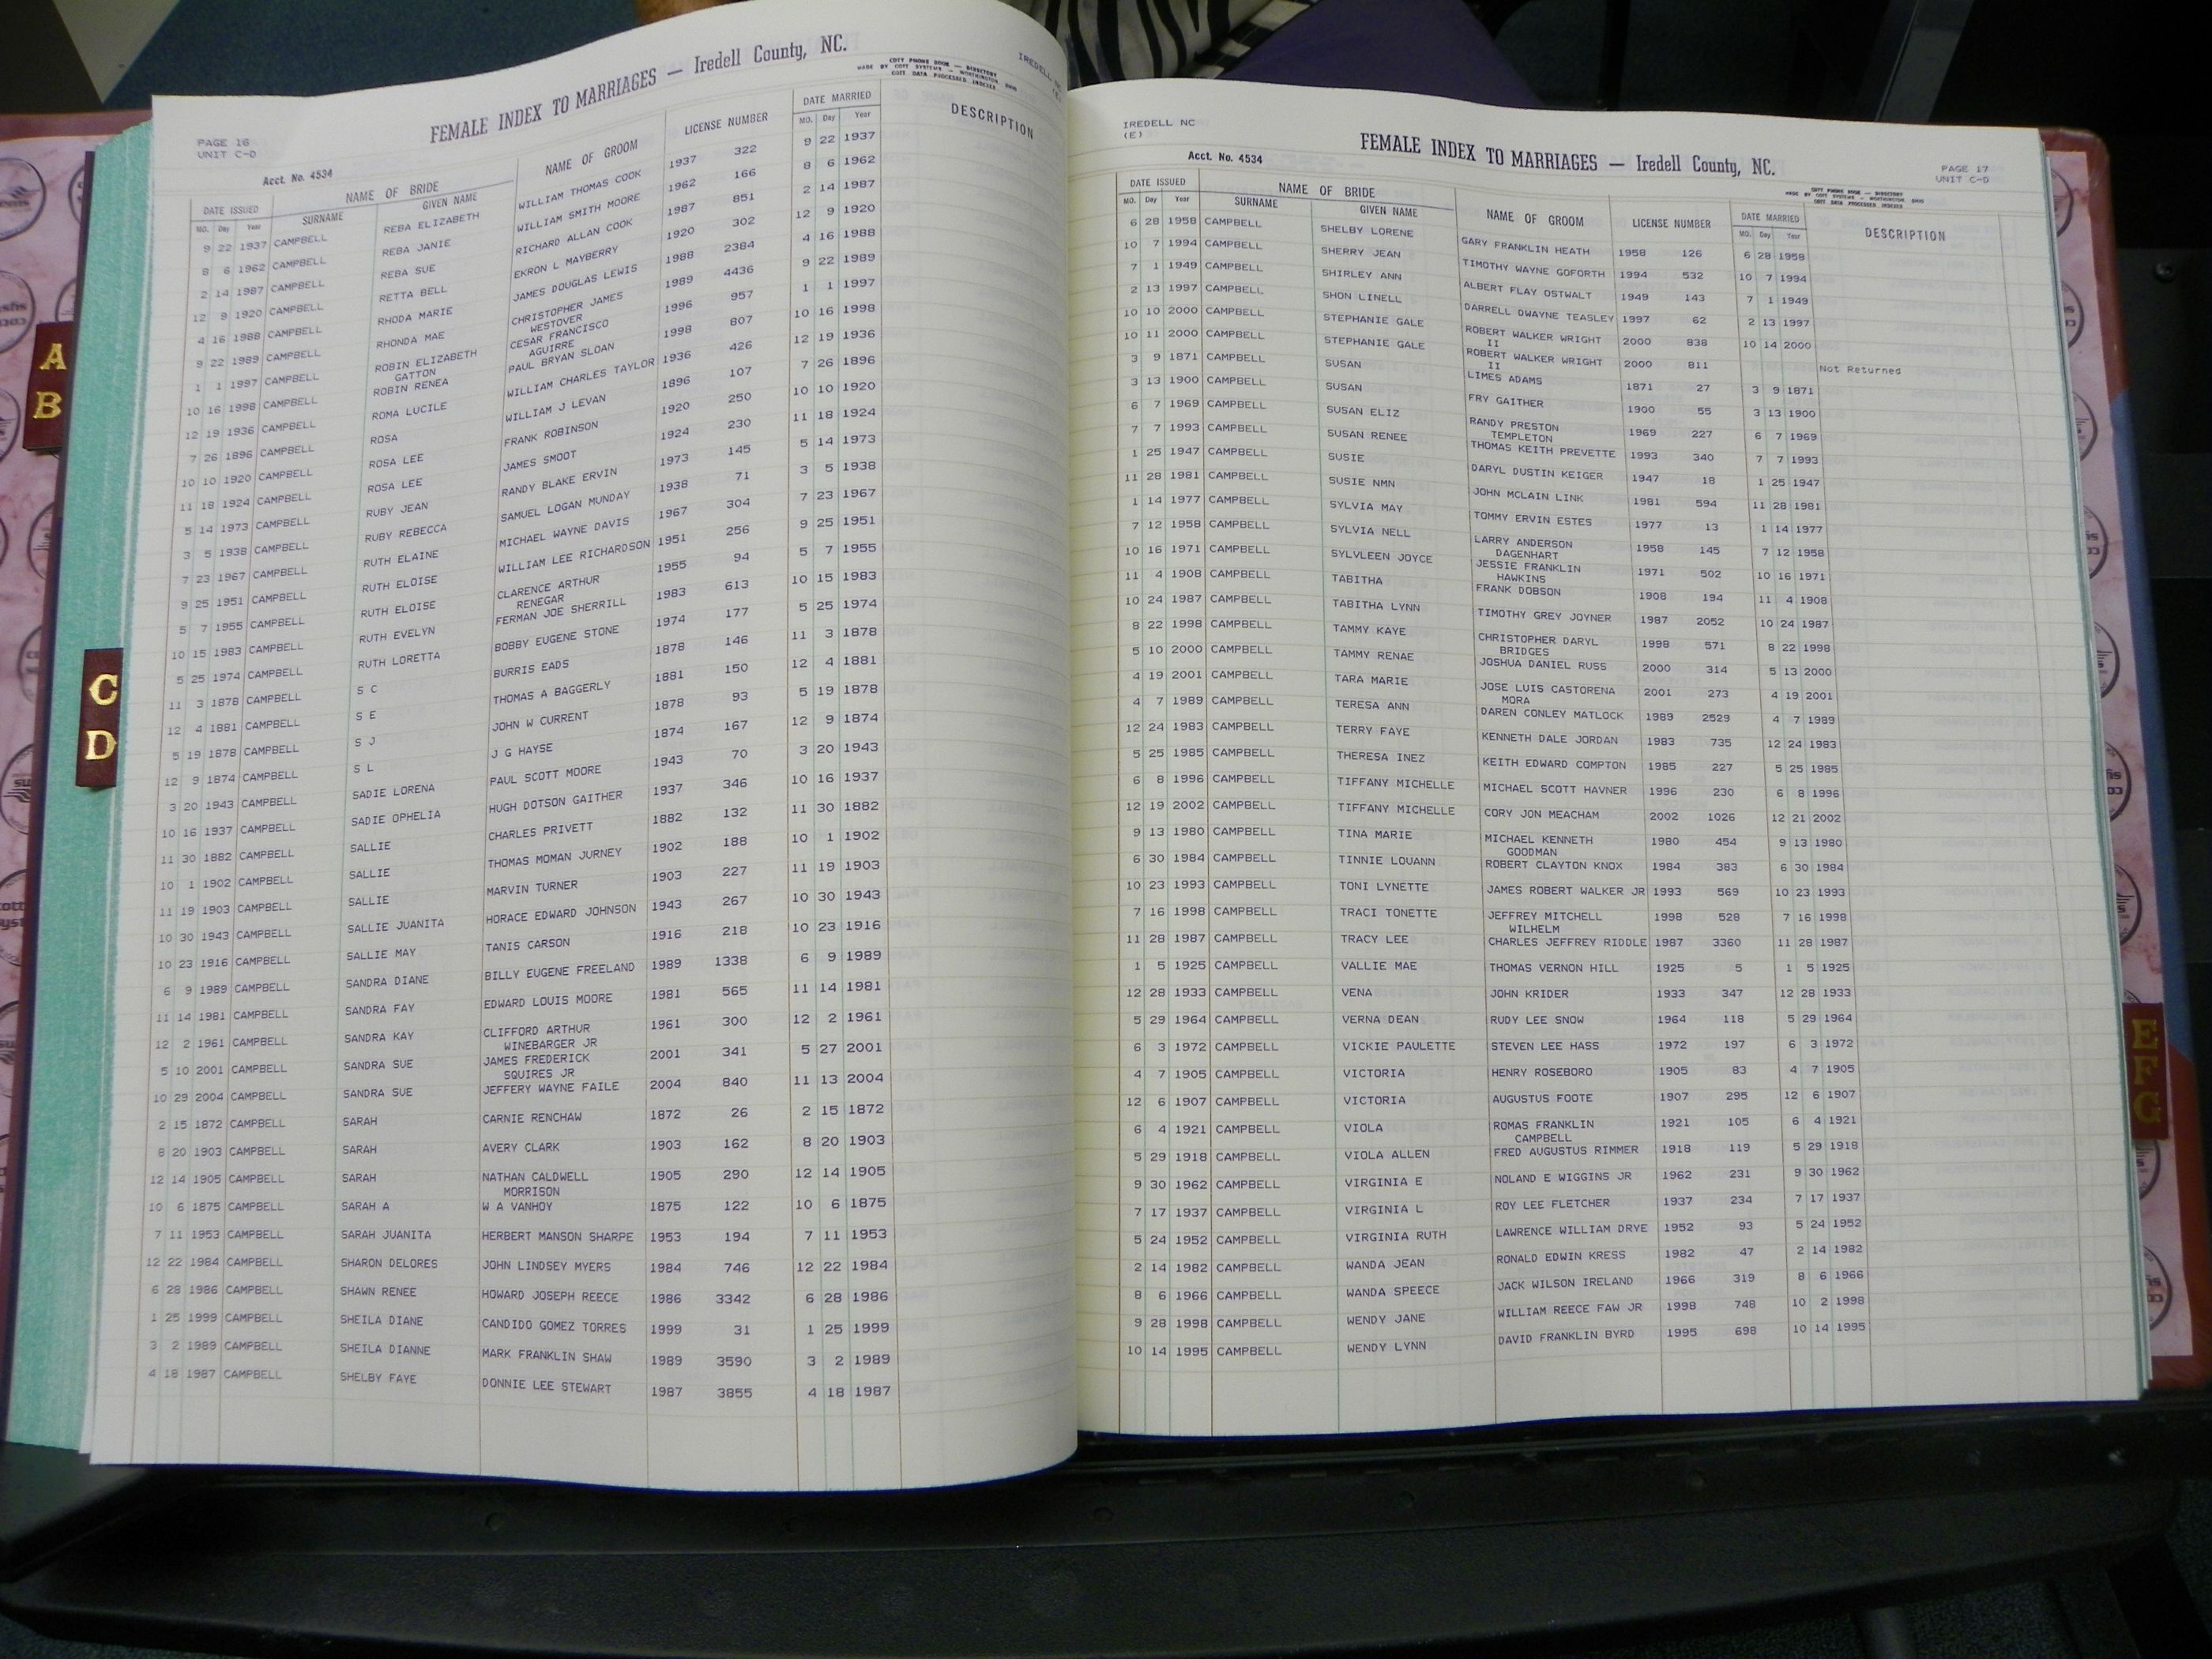 PAGE 16
UNIT C-D
FEMALE INDEX TO MARRIAGES — Iredell County, NC.
COTT PHONE BOOK — DIRECTORY
MADE BY COTT SYSTEMS — WORTHINGTON OHIO
COTT DATA PROCESSED INDEXER
Acct. No. 4534
DATE ISSUED NAME OF BRIDE NAME OF GROOM LICENSE NUMBER DATE MARRIED DESCRIPTION
MO. Day Year SURNAME GIVEN NAME MO. Day Year
9 22 1937 CAMPBELL REBA ELIZABETH WILLIAM THOMAS COOK 1937 322 9 22 1937
8 6 1962 CAMPBELL REBA JANIE WILLIAM SMITH MOORE 1962 166 8 6 1962
2 14 1987 CAMPBELL REBA SUE RICHARD ALLAN COOK 1987 851 2 14 1987
12 9 1920 CAMPBELL RETTA BELL EKRON L MAYBERRY 1920 302 12 9 1920
4 16 1988 CAMPBELL RHODA MARIE JAMES DOUGLAS LEWIS 1988 2384 4 16 1988
9 22 1989 CAMPBELL RHONDA MAE CHRISTOPHER JAMES 1989 4436 9 22 1989
WESTOVER
1 1 1997 CAMPBELL ROBIN ELIZABETH CESAR FRANCISCO 1996 957 1 1 1997
GATTON AGUIRRE
10 16 1998 CAMPBELL ROBIN RENEA PAUL BRYAN SLOAN 1998 807 10 16 1998
12 19 1936 CAMPBELL ROMA LUCILE WILLIAM CHARLES TAYLOR 1936 426 12 19 1936
7 26 1896 CAMPBELL ROSA WILLIAM J LEVAN 1896 107 7 26 1896
10 10 1920 CAMPBELL ROSA LEE FRANK ROBINSON 1920 250 10 10 1920
11 18 1924 CAMPBELL ROSA LEE JAMES SMOOT 1924 230 11 18 1924
5 14 1973 CAMPBELL RUBY JEAN RANDY BLAKE ERVIN 1973 145 5 14 1973
3 5 1938 CAMPBELL RUBY REBECCA SAMUEL LOGAN MUNDAY 1938 71 3 5 1938
7 23 1967 CAMPBELL RUTH ELAINE MICHAEL WAYNE DAVIS 1967 304 7 23 1967
9 25 1951 CAMPBELL RUTH ELOISE WILLIAM LEE RICHARDSON 1951 256 9 25 1951
5 7 1955 CAMPBELL RUTH ELOISE CLARENCE ARTHUR 1955 94 5 7 1955
RENEGAR
10 15 1983 CAMPBELL RUTH EVELYN FERMAN JOE SHERRILL 1983 613 10 15 1983
5 25 1974 CAMPBELL RUTH LORETTA BOBBY EUGENE STONE 1974 177 5 25 1974
11 3 1878 CAMPBELL S C BURRIS EADS 1878 146 11 3 1878
12 4 1881 CAMPBELL S E THOMAS A BAGGERLY 1881 150 12 4 1881
5 19 1878 CAMPBELL S J JOHN W CURRENT 1878 93 5 19 1878
12 9 1874 CAMPBELL S L J G HAYSE 1874 167 12 9 1874
3 20 1943 CAMPBELL SADIE LORENA PAUL SCOTT MOORE 1943 70 3 20 1943
10 16 1937 CAMPBELL SADIE OPHELIA HUGH DOTSON GAITHER 1937 346 10 16 1937
11 30 1882 CAMPBELL SALLIE CHARLES PRIVETT 1882 132 11 30 1882
10 1 1902 CAMPBELL SALLIE THOMAS MOMAN JURNEY 1902 188 10 1 1902
11 19 1903 CAMPBELL SALLIE MARVIN TURNER 1903 227 11 19 1903
10 30 1943 CAMPBELL SALLIE JUANITA HORACE EDWARD JOHNSON 1943 267 10 30 1943
10 23 1916 CAMPBELL SALLIE MAY TANIS CARSON 1916 218 10 23 1916
6 9 1989 CAMPBELL SANDRA DIANE BILLY EUGENE FREELAND 1989 1338 6 9 1989
11 14 1981 CAMPBELL SANDRA FAY EDWARD LOUIS MOORE 1981 565 11 14 1981
12 2 1961 CAMPBELL SANDRA KAY CLIFFORD ARTHUR 1961 300 12 2 1961
WINEBARGER JR
5 10 2001 CAMPBELL SANDRA SUE JAMES FREDERICK 2001 341 5 27 2001
SQUIRES JR
10 29 2004 CAMPBELL SANDRA SUE JEFFERY WAYNE FAILE 2004 840 11 13 2004
2 15 1872 CAMPBELL SARAH CARNIE RENCHAW 1872 26 2 15 1872
8 20 1903 CAMPBELL SARAH AVERY CLARK 1903 162 8 20 1903
12 14 1905 CAMPBELL SARAH NATHAN CALDWELL 1905 290 12 14 1905
MORRISON
10 6 1875 CAMPBELL SARAH A W A VANHOY 1875 122 10 6 1875
7 11 1953 CAMPBELL SARAH JUANITA HERBERT MANSON SHARPE 1953 194 7 11 1953
12 22 1984 CAMPBELL SHARON DELORES JOHN LINDSEY MYERS 1984 746 12 22 1984
6 28 1986 CAMPBELL SHAWN RENEE HOWARD JOSEPH REECE 1986 3342 6 28 1986
1 25 1999 CAMPBELL SHEILA DIANE CANDIDO GOMEZ TORRES 1999 31 1 25 1999
3 2 1989 CAMPBELL SHEILA DIANNE MARK FRANKLIN SHAW 1989 3590 3 2 1989
4 18 1987 CAMPBELL SHELBY FAYE DONNIE LEE STEWART 1987 3855 4 18 1987
IREDELL NC
(E)
FEMALE INDEX TO MARRIAGES — Iredell County, NC.
PAGE 17
UNIT C-D
Acct. No. 4534
COTT PHONE BOOK — DIRECTORY
MADE BY COTT SYSTEMS — WORTHINGTON OHIO
COTT DATA PROCESSED INDEXER
DATE ISSUED NAME OF BRIDE NAME OF GROOM LICENSE NUMBER DATE MARRIED DESCRIPTION
MO. Day Year SURNAME GIVEN NAME MO. Day Year
6 28 1958 CAMPBELL SHELBY LORENE GARY FRANKLIN HEATH 1958 126 6 28 1958
10 7 1994 CAMPBELL SHERRY JEAN TIMOTHY WAYNE GOFORTH 1994 532 10 7 1994
7 1 1949 CAMPBELL SHIRLEY ANN ALBERT FLAY OSTWALT 1949 143 7 1 1949
2 13 1997 CAMPBELL SHON LINELL DARRELL DWAYNE TEASLEY 1997 62 2 13 1997
10 10 2000 CAMPBELL STEPHANIE GALE ROBERT WALKER WRIGHT 2000 838 10 14 2000
II
10 11 2000 CAMPBELL STEPHANIE GALE ROBERT WALKER WRIGHT 2000 811 Not Returned
II
3 9 1871 CAMPBELL SUSAN LIMES ADAMS 1871 27 3 9 1871
3 13 1900 CAMPBELL SUSAN FRY GAITHER 1900 55 3 13 1900
6 7 1969 CAMPBELL SUSAN ELIZ RANDY PRESTON 1969 227 6 7 1969
TEMPLETON
7 7 1993 CAMPBELL SUSAN RENEE THOMAS KEITH PREVETTE 1993 340 7 7 1993
1 25 1947 CAMPBELL SUSIE DARYL DUSTIN KEIGER 1947 18 1 25 1947
11 28 1981 CAMPBELL SUSIE NMN JOHN MCLAIN LINK 1981 594 11 28 1981
1 14 1977 CAMPBELL SYLVIA MAY TOMMY ERVIN ESTES 1977 13 1 14 1977
7 12 1958 CAMPBELL SYLVIA NELL LARRY ANDERSON 1958 145 7 12 1958
DAGENHART
10 16 1971 CAMPBELL SYLVLEEN JOYCE JESSIE FRANKLIN 1971 502 10 16 1971
HAWKINS
11 4 1908 CAMPBELL TABITHA FRANK DOBSON 1908 194 11 4 1908
10 24 1987 CAMPBELL TABITHA LYNN TIMOTHY GREY JOYNER 1987 2052 10 24 1987
8 22 1998 CAMPBELL TAMMY KAYE CHRISTOPHER DARYL 1998 571 8 22 1998
BRIDGES
5 10 2000 CAMPBELL TAMMY RENAE JOSHUA DANIEL RUSS 2000 314 5 13 2000
4 19 2001 CAMPBELL TARA MARIE JOSE LUIS CASTORENA 2001 273 4 19 2001
MORA
4 7 1989 CAMPBELL TERESA ANN DAREN CONLEY MATLOCK 1989 2529 4 7 1989
12 24 1983 CAMPBELL TERRY FAYE KENNETH DALE JORDAN 1983 735 12 24 1983
5 25 1985 CAMPBELL THERESA INEZ KEITH EDWARD COMPTON 1985 227 5 25 1985
6 8 1996 CAMPBELL TIFFANY MICHELLE MICHAEL SCOTT HAVNER 1996 230 6 8 1996
12 19 2002 CAMPBELL TIFFANY MICHELLE CORY JON MEACHAM 2002 1026 12 21 2002
9 13 1980 CAMPBELL TINA MARIE MICHAEL KENNETH 1980 454 9 13 1980
GOODMAN
6 30 1984 CAMPBELL TINNIE LOUANN ROBERT CLAYTON KNOX 1984 383 6 30 1984
10 23 1993 CAMPBELL TONI LYNETTE JAMES ROBERT WALKER JR 1993 569 10 23 1993
7 16 1998 CAMPBELL TRACI TONETTE JEFFREY MITCHELL 1998 528 7 16 1998
WILHELM
11 28 1987 CAMPBELL TRACY LEE CHARLES JEFFREY RIDDLE 1987 3360 11 28 1987
1 5 1925 CAMPBELL VALLIE MAE THOMAS VERNON HILL 1925 5 1 5 1925
12 28 1933 CAMPBELL VENA JOHN KRIDER 1933 347 12 28 1933
5 29 1964 CAMPBELL VERNA DEAN RUDY LEE SNOW 1964 118 5 29 1964
6 3 1972 CAMPBELL VICKIE PAULETTE STEVEN LEE HASS 1972 197 6 3 1972
4 7 1905 CAMPBELL VICTORIA HENRY ROSEBORO 1905 83 4 7 1905
12 6 1907 CAMPBELL VICTORIA AUGUSTUS FOOTE 1907 295 12 6 1907
6 4 1921 CAMPBELL VIOLA ROMAS FRANKLIN 1921 105 6 4 1921
CAMPBELL
5 29 1918 CAMPBELL VIOLA ALLEN FRED AUGUSTUS RIMMER 1918 119 5 29 1918
9 30 1962 CAMPBELL VIRGINIA E NOLAND E WIGGINS JR 1962 231 9 30 1962
7 17 1937 CAMPBELL VIRGINIA L ROY LEE FLETCHER 1937 234 7 17 1937
5 24 1952 CAMPBELL VIRGINIA RUTH LAWRENCE WILLIAM DRYE 1952 93 5 24 1952
2 14 1982 CAMPBELL WANDA JEAN RONALD EDWIN KRESS 1982 47 2 14 1982
8 6 1966 CAMPBELL WANDA SPEECE JACK WILSON IRELAND 1966 319 8 6 1966
9 28 1998 CAMPBELL WENDY JANE WILLIAM REECE FAW JR 1998 748 10 2 1998
10 14 1995 CAMPBELL WENDY LYNN DAVID FRANKLIN BYRD 1995 698 10 14 1995
A
B
C
D
E
F
G